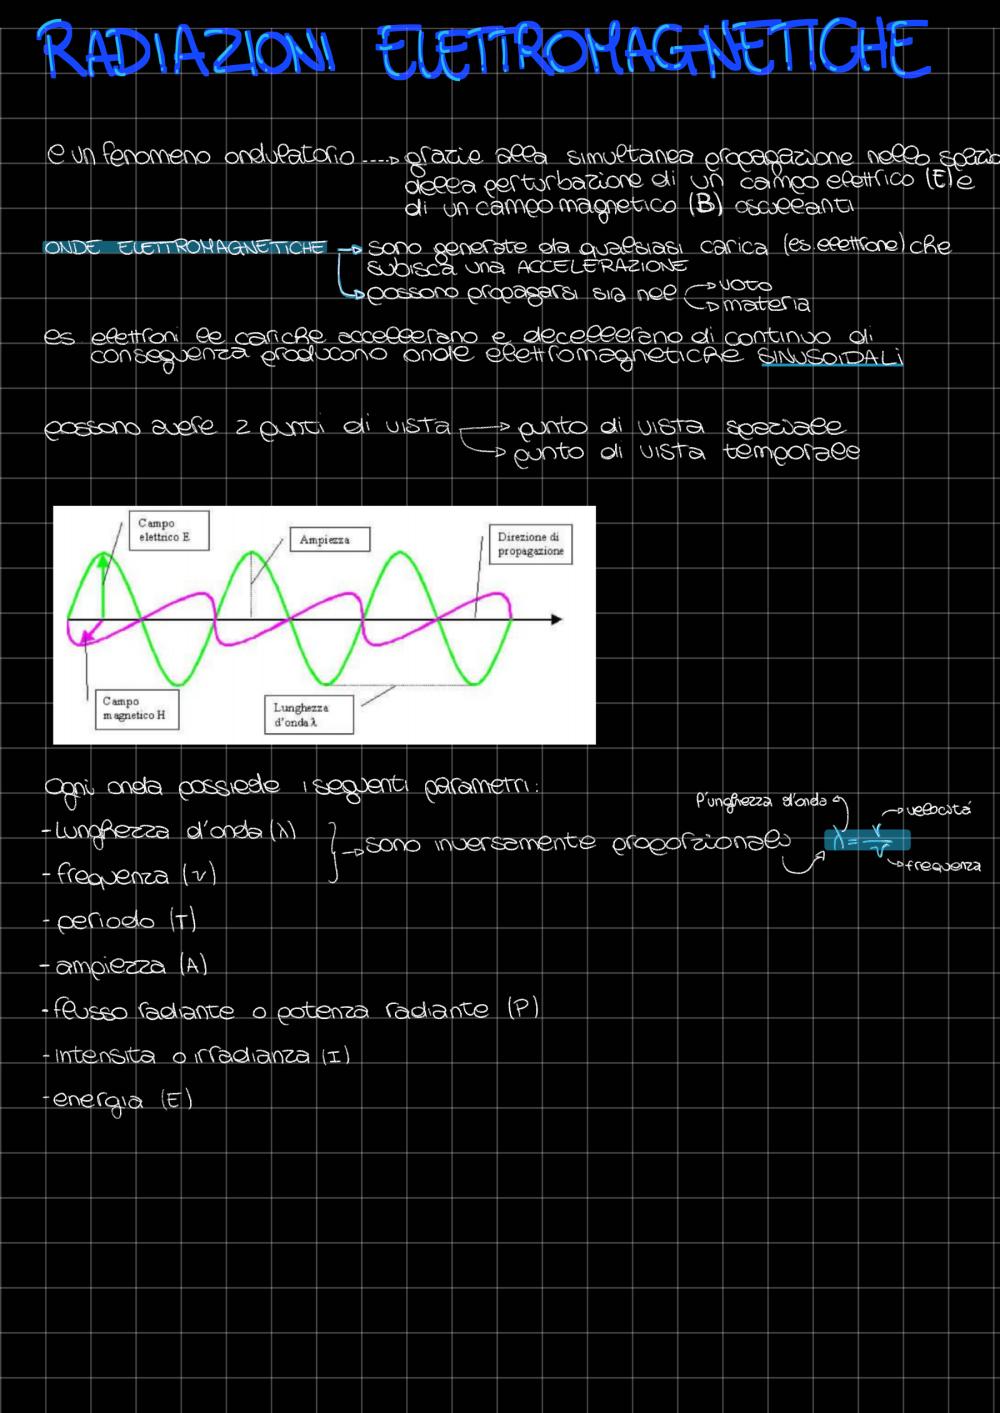 RADIAZIONI ELETTROMAGNETICHE
è un fenomeno ondulatorio ----> grazie alla simultanea propagazione nello spazio
della perturbazione di un campo elettrico (E) e
di un campo magnetico (B) oscillanti
ONDE ELETTROMAGNETICHE → sono generate da qualsiasi carica (es. elettrone) che
subisca una ACCELERAZIONE
→ possono propagarsi sia nel → vuoto
→ materia
es elettroni le cariche accellerano e decellerano di continuo di
conseguenza producono onde elettromagnetiche SINUSOIDALI
possono avere 2 punti di vista → punto di vista speziale
→ punto di vista temporale
Campo
elettrico E
Ampiezza
Direzione di
propagazione
Campo
magnetico H
Lunghezza
d'onda λ
Ogni onda possiede i seguenti parametri:
l'unghezza d'onda
→ velocità
- lunghezza d'onda (λ)
→ sono inversamente proporzionali
λ = v/ν
→ frequenza
- frequenza (ν)
- periodo (T)
- ampiezza (A)
- flusso radiante o potenza radiante (P)
- intensita o irradianza (I)
- energia (E)